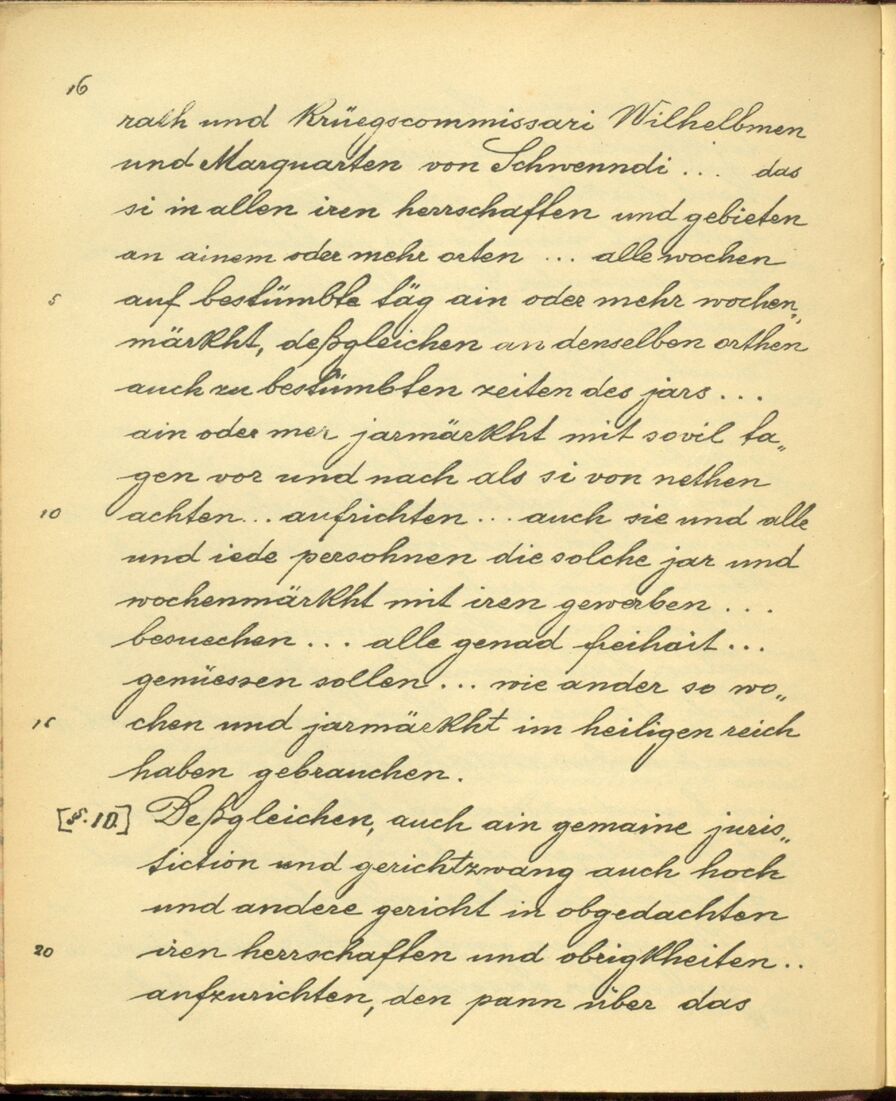 16
rath und Krüegscommissari Wilhelbmen
und Marquarten von Schwenndi ... das
si in allen iren herrschaften und gebieten
an ainem oder mehr orten ... alle wochen
5 auf bestümbte täg ain oder mehr wochen„
märkht, deßgleichen an denselben orthen
auch zu bestümbten zeiten des jars ...
ain oder mer jarmärkht mit sovil ta„
gen vor und nach als si von nethen
10 achten ... aufrichten ... auch sie und alle
und iede persohnen die solche jar und
wochenmärkht mit iren gewerben ...
besuechen ... alle genad freihait ...
genüessen sollen ... wie ander so wo„
15 chen und jarmärkht im heiligen reich
haben gebrauchen.
[S. 10] Deßgleichen, auch ain gemaine juris„
tiction und gerichtzwang auch hoch
und andere gericht in obgedachten
20 iren herrschaften und obrigkheiten ..
aufzurichten, den pann über das